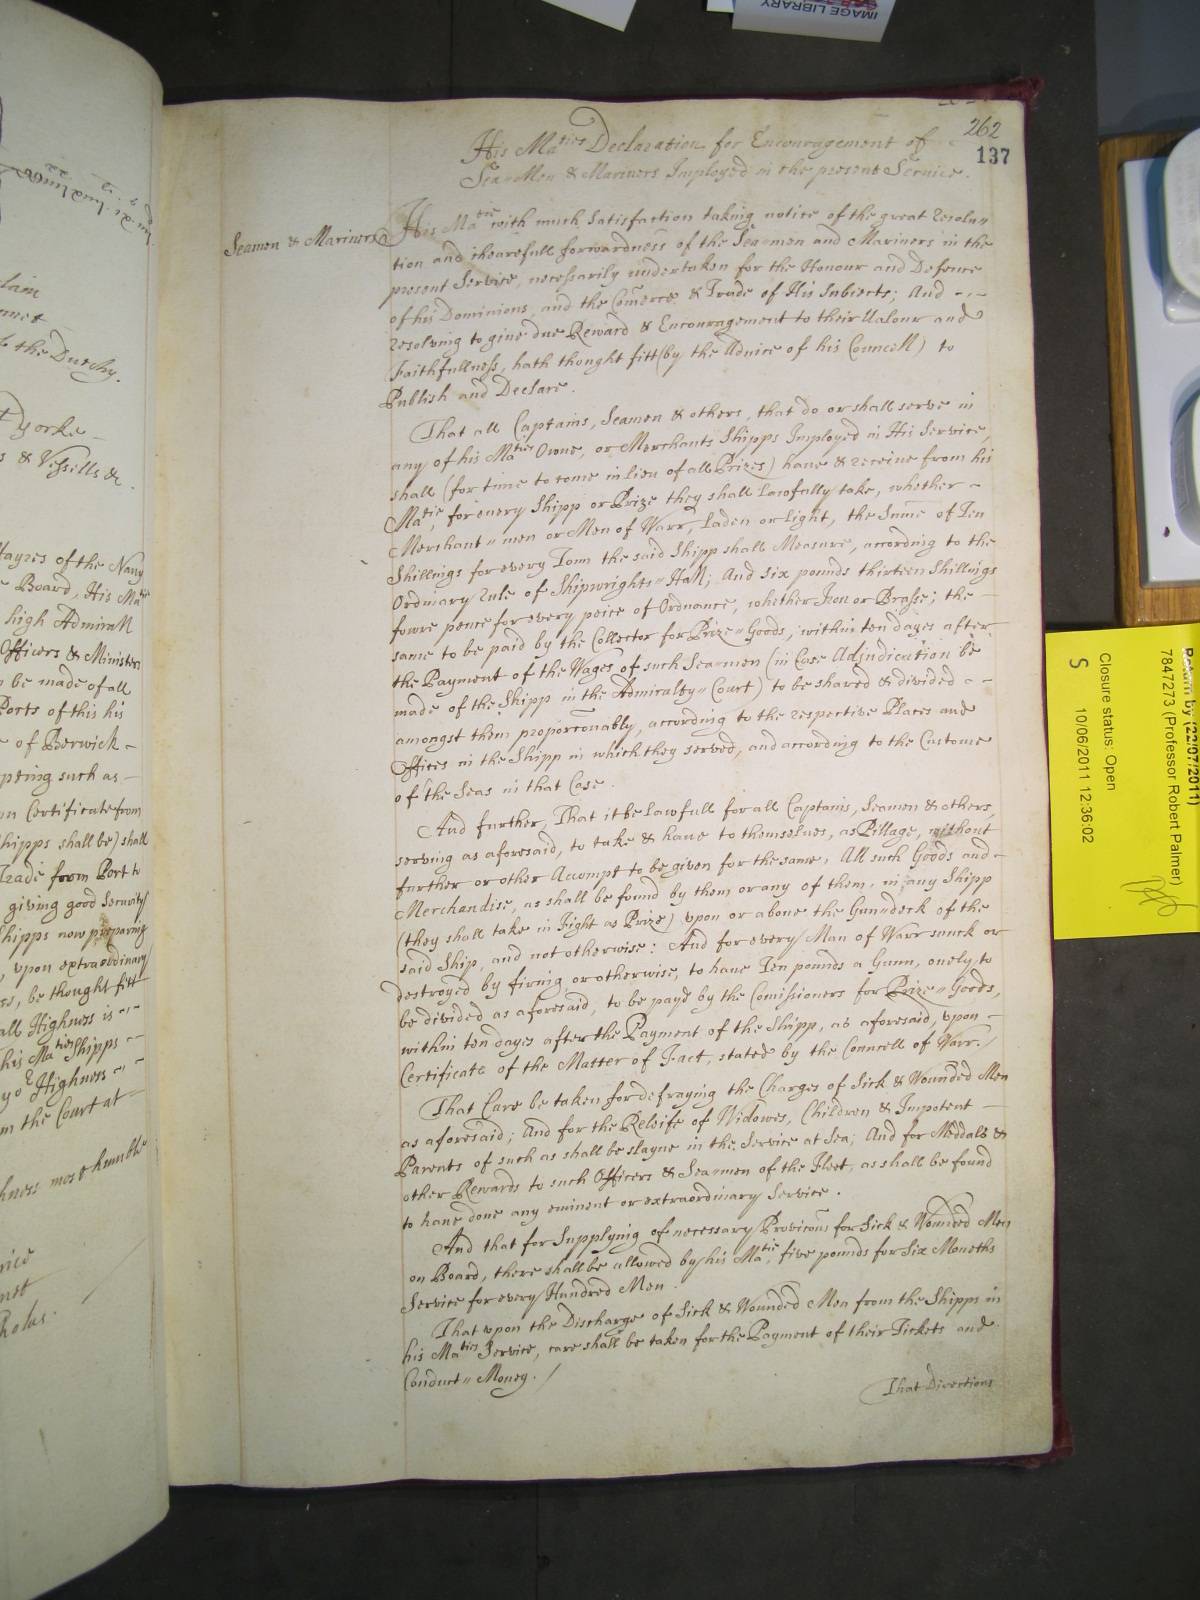 IMAGE LIBRARY
262
137
His Ma^ties Declaration for Encouragement of
Sea=Men & Mariners Imployed in the present Service.
Seamen & Mariners
His Ma^tie with much Satisfaction taking notice of the great resolu=
tion and chearefull forwardness of the Sea=men and Mariners in the
present Service, necessarily undertaken for the Honour and Defence
of his Dominions, and the Comerce & Trade of His Subiects; And - - -
resolving to giue due Reward & Encouragement to their Ualour and
Faithfullness, hath thought fitt (by the Aduice of his Councell) to
Publish and Declare.
That all Captains, Seamen & others, that do or shall serve in
any of his Ma^ties Owne, or Merchants Shipps Imployed in His Service,
shall (for time to come in lieu of all Prizes) haue & receiue from his
Ma^tie, for euery Shipp or Prize they shall lawfully take, whether -
Merchant=men or Men of Warr, Laden or light, the Sume of Ten
Shillings for every Tonn the said Shipp shall Measure, according to the
Ordinary rule of Shipwrights=Hall; And six pounds thirteen Shillings
fowre pence for every peice of Ordnance, whether Iron or Brasse; the -
same to be paid by the Collector for Prize=Goods, within ten dayes after
the Payment of the Wages of such Sea=men (in Case Adjudication be
made of the Shipp in the Admiralty=Court) to be shared & divided - -
amongst them proportonably, according to the respective Places and
Offices in the Shipp in which they served, and according to the Custome
of the Seas in that Case.
And further, That it be lawfull for all Captains, Seamen & others,
serving as aforesaid, to take & haue to themselues, as Pillage, without
further or other Accompt to be given for the same, All such Goods and -
Merchandise, as shall be found by them or any of them, in any Shipp
(they shall take in Fight as Prize) upon or aboue the Gun=deck of the
said Ship, and not otherwise: And for every Man of Warr sunck or
destroyed by firing, or otherwise, to haue Ten pounds a Gunn, onely to
be divided as aforesaid, to be payd by the Comissioners for Prize=Goods,
within ten dayes after the Payment of the Shipp, as aforesaid, upon -
Certificate of the Matter of Fact, stated by the Councell of Warr./
That Care be taken for defraying the Charges of Sick & Wounded Men
as aforesaid; And for the Releife of Widowes, Children & Impotent -
Parents of such as shall be slayne in the Service at Sea; And for Meddals &
other Rewards to such Officers & Sea=men of the Fleet, as shall be found
to haue done any eminent or extraordinary Service.
And that for Supplying of necessary Provicons for Sick & Wounded Men
on Board, there shall be allowed by his Ma^tie, five pounds for Six Moneths
Service for every Hundred Men.
That upon the Discharge of Sick & Wounded Men from the Shipps in
his Ma^ties Service, care shall be taken for the Payment of their Tickets and
Conduct=Money./
That Directions
the Dutchy.
Yorke -
& Vessells &c.
of the Navy
Board, His Ma^tie
high Admirall
Officers & Ministers
be made of all
Ports of this his
of Berwick -
such as -
Certificate from
hipps shall be) shall
Trade from Port to
giving good Security
Shipps now preparing
, upon extraordinary
, be thought fitt
all Highness is
his Ma^ties Shipps
yo^r Highness
the Court at
most humble
Return by (22/07/2011)
7847273 (Professor Robert Palmer)
Closure status: Open
S 10/06/2011 12:36:02